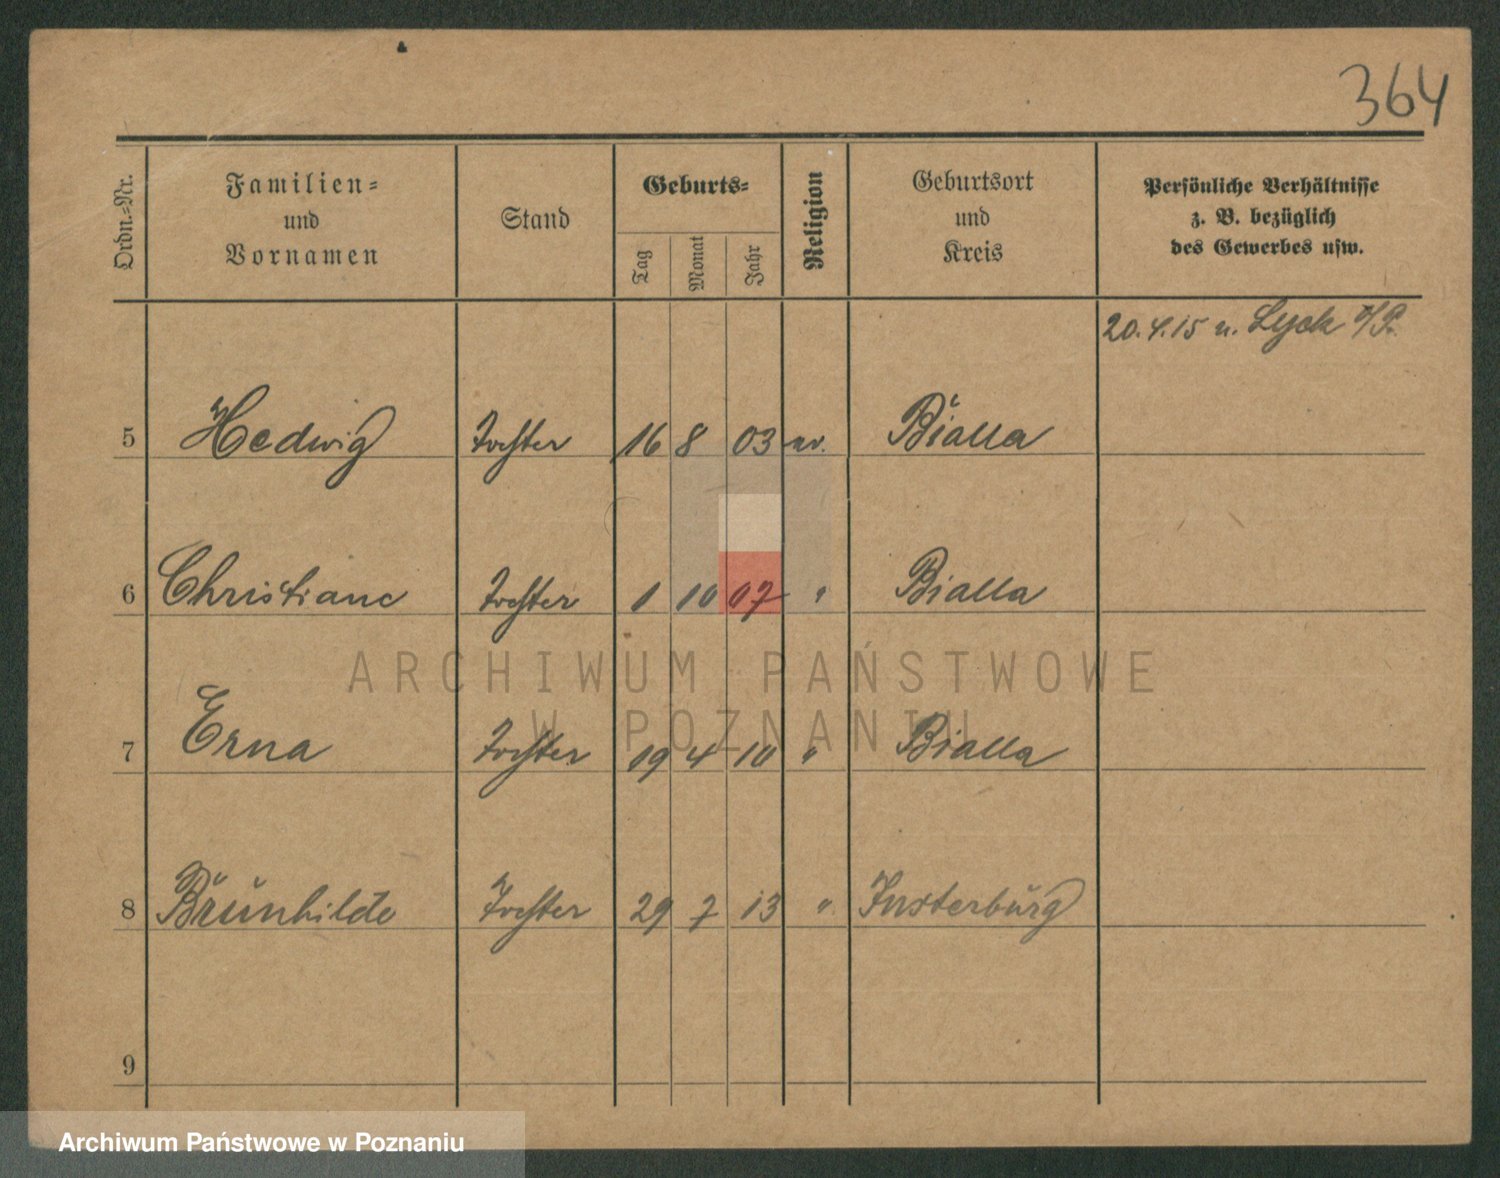 364
Ordn.=Nr.
Familien=
und
Vornamen
Stand
Geburts=
Tag
Monat
Jahr
Religion
Geburtsort
und
Kreis
Persönliche Verhältnisse
z. B. bezüglich
des Gewerbes usw.
20.4.15 n. Lyck
5 Hedwig Tochter 16 8 03 ev. Bialla
6 Christiane Tochter 1 10 07 " Bialla
ARCHIWUM PAŃSTWOWE
W POZNANIU
7 Erna Tochter 19 4 10 " Bialla
8 Brunhilde Tochter 29 7 13 " Insterburg
9
Archiwum Państwowe w Poznaniu